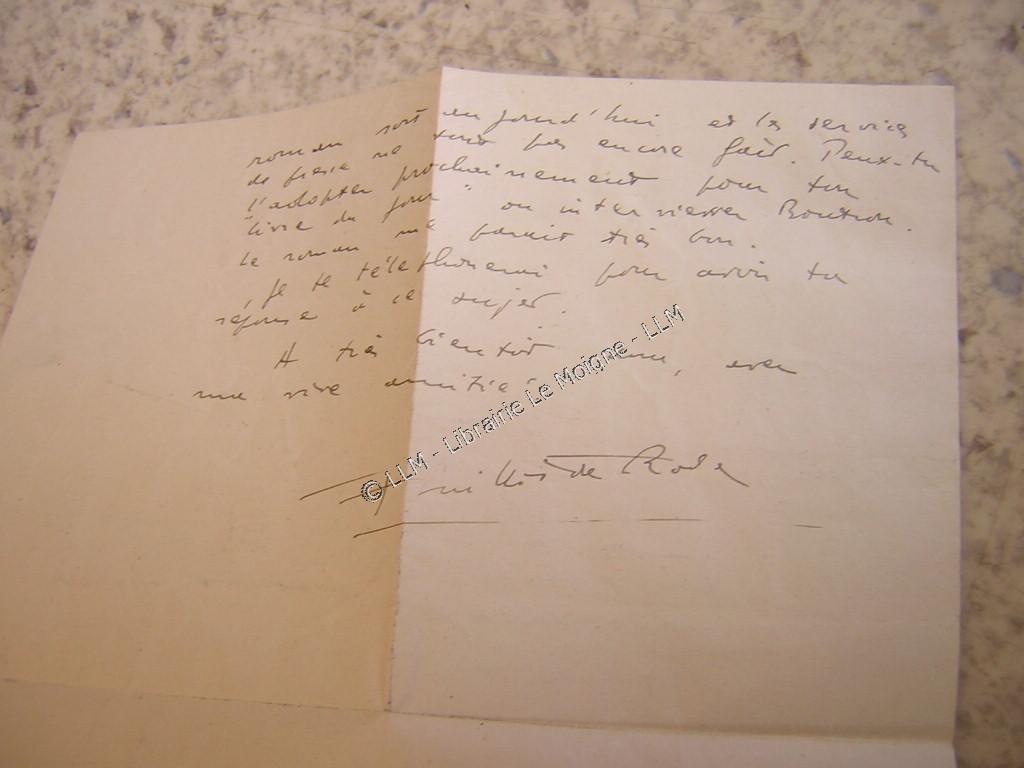 roman sort aujourd'hui et les services
de presse ne sont pas encore faits. Peux-tu
l'adopter prochainement pour ton
"livre du jour" ou interviewer Boutron.
Le roman me paraît très bon.
Je te téléphonerai pour avoir ta
réponse à ce sujet.
A très bientôt, avec
ma vive amitié
de
© LLM - Librairie Le Moigne - LLM